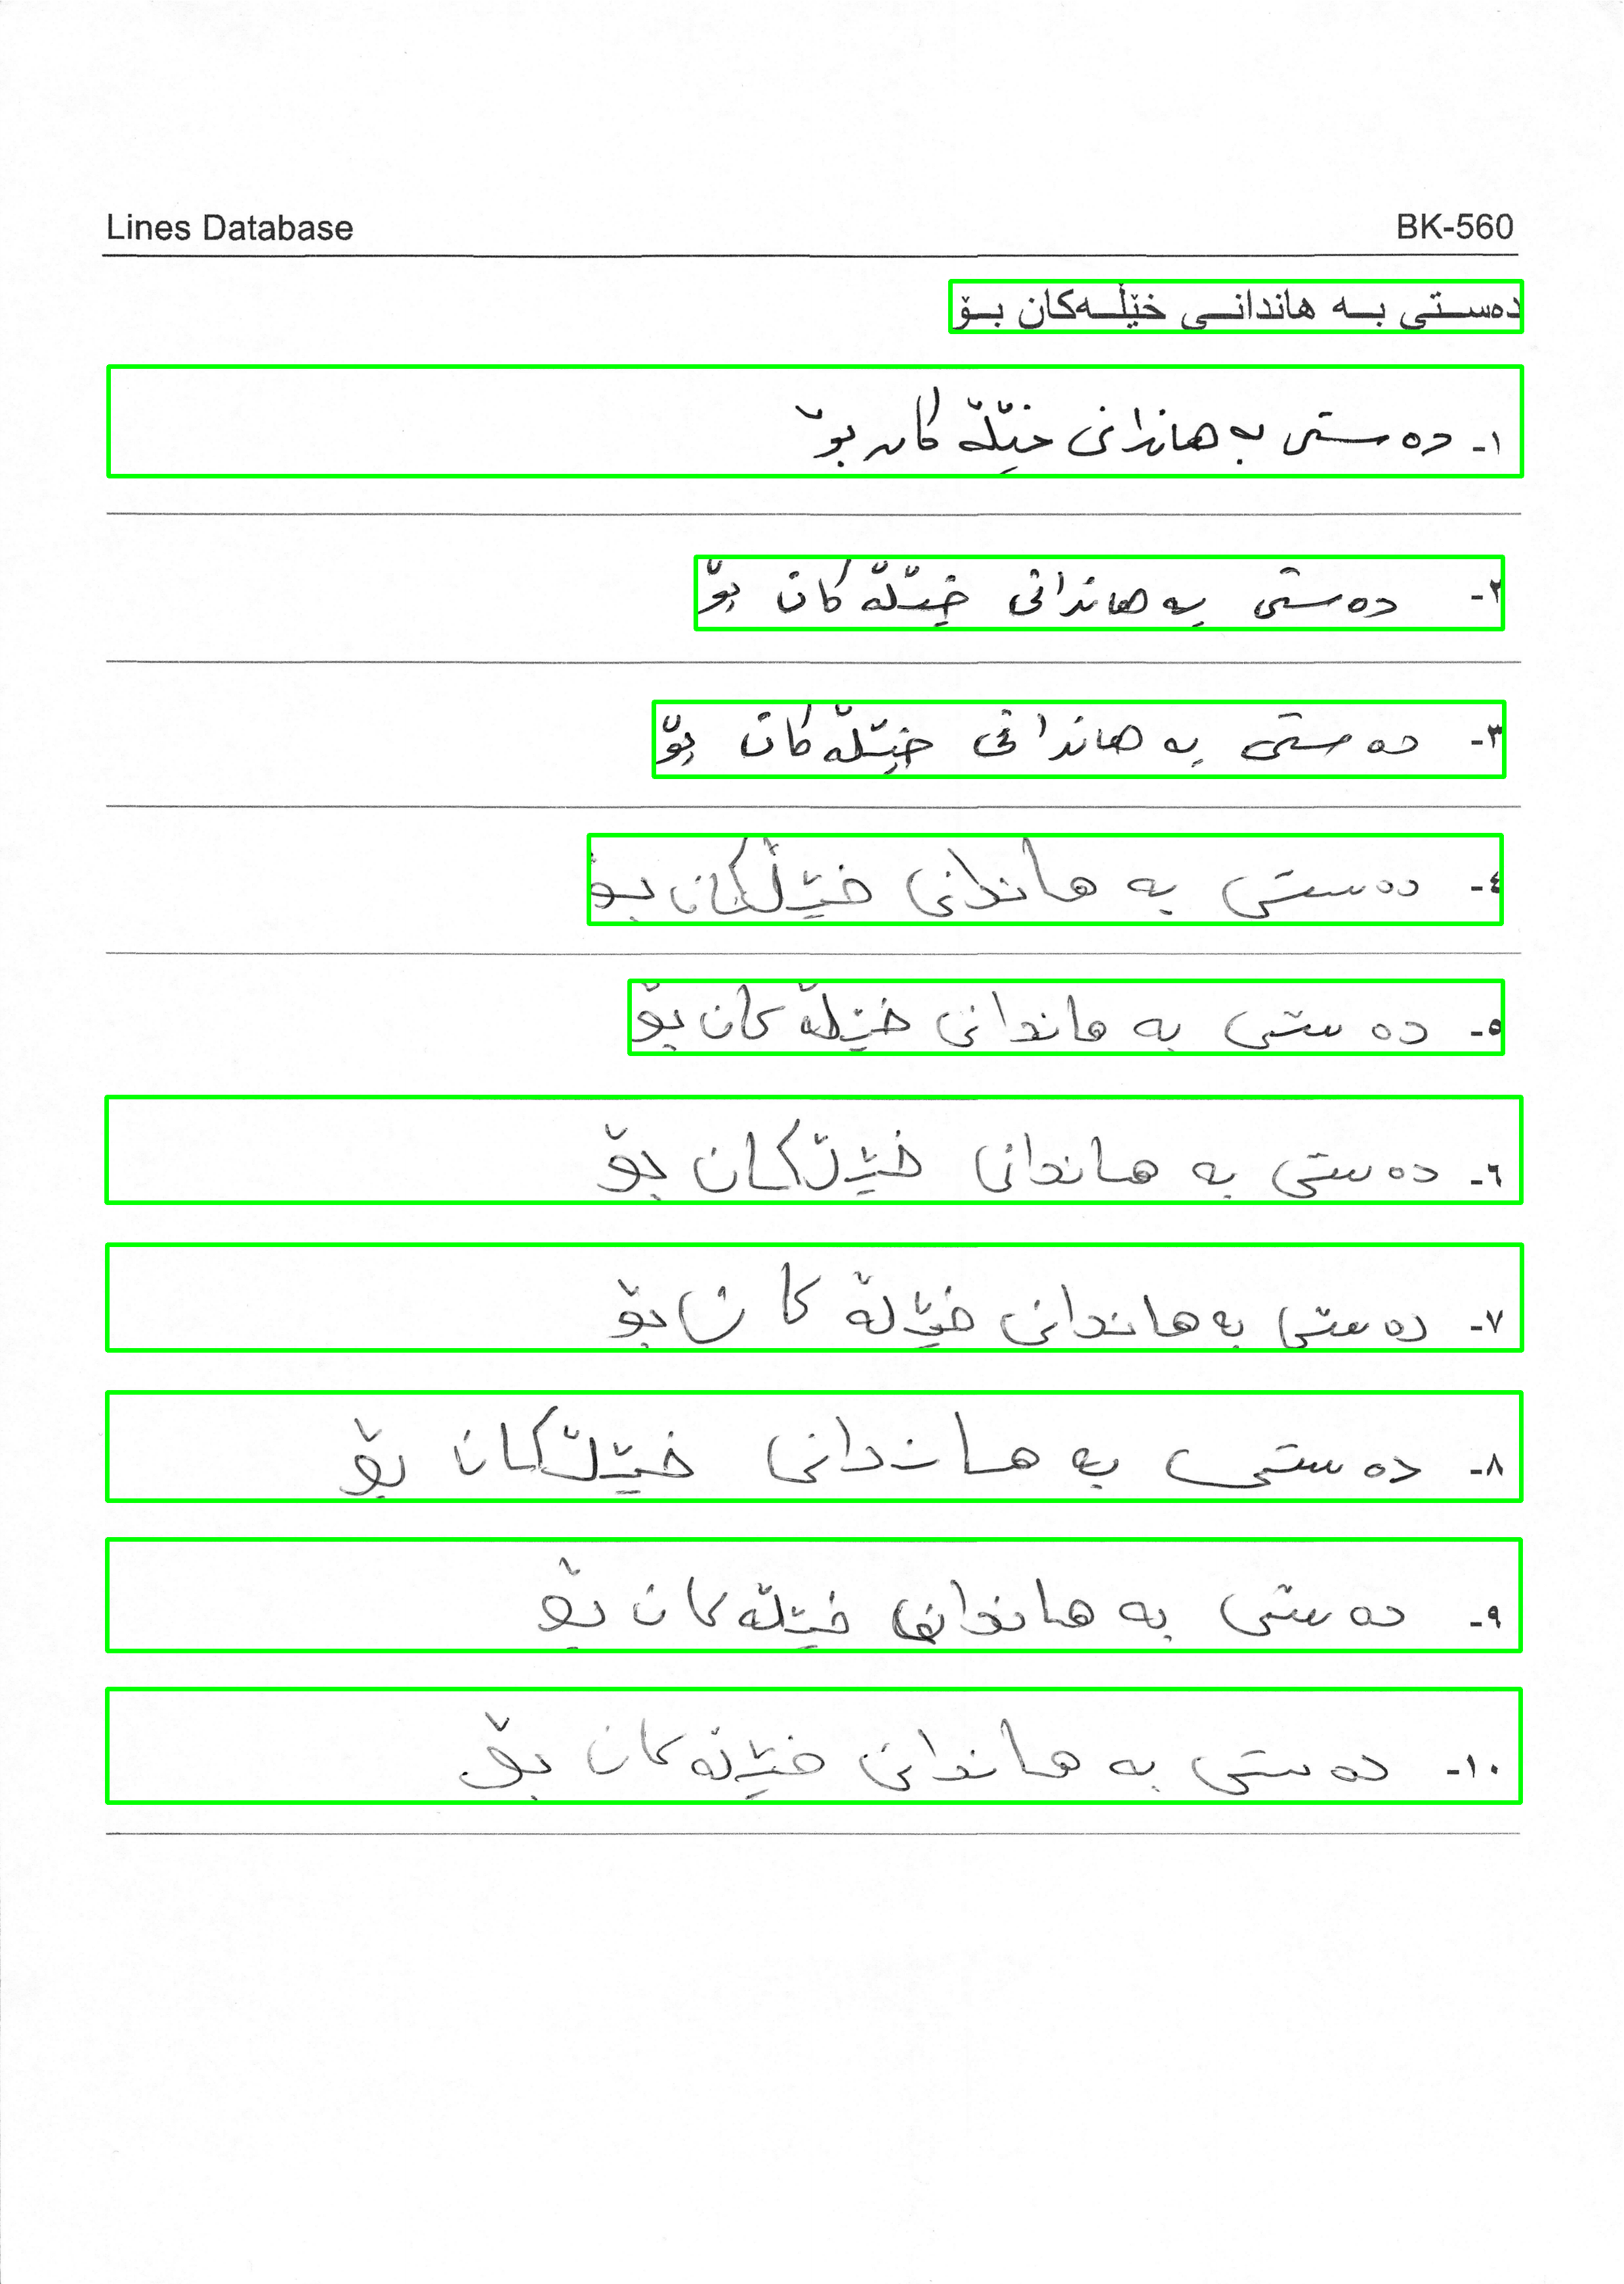 Lines Database BK-560
دەستی بە هاندانی خێڵەکان بۆ
١- دەستی بە هاندانی خێڵە کان بۆ
٢- دەستی بە هاندانی خێڵە کان بۆ
٣- دەستی بە هاندانی خێڵە کان بۆ
٤- دەستی بە هاندانی خێڵکان بۆ
٥- دەستی بە هاندانی خێڵە کان بۆ
٦- دەستی بە هاندانی خێڵکان بۆ
٧- دەستی بە هاندانی خێڵە کان بۆ
٨- دەستی بە هاندانی خێڵکان بۆ
٩- دەستی بە هاندانی خێڵە کان بۆ
١٠- دەستی بە هاندانی خێڵە کان بۆ